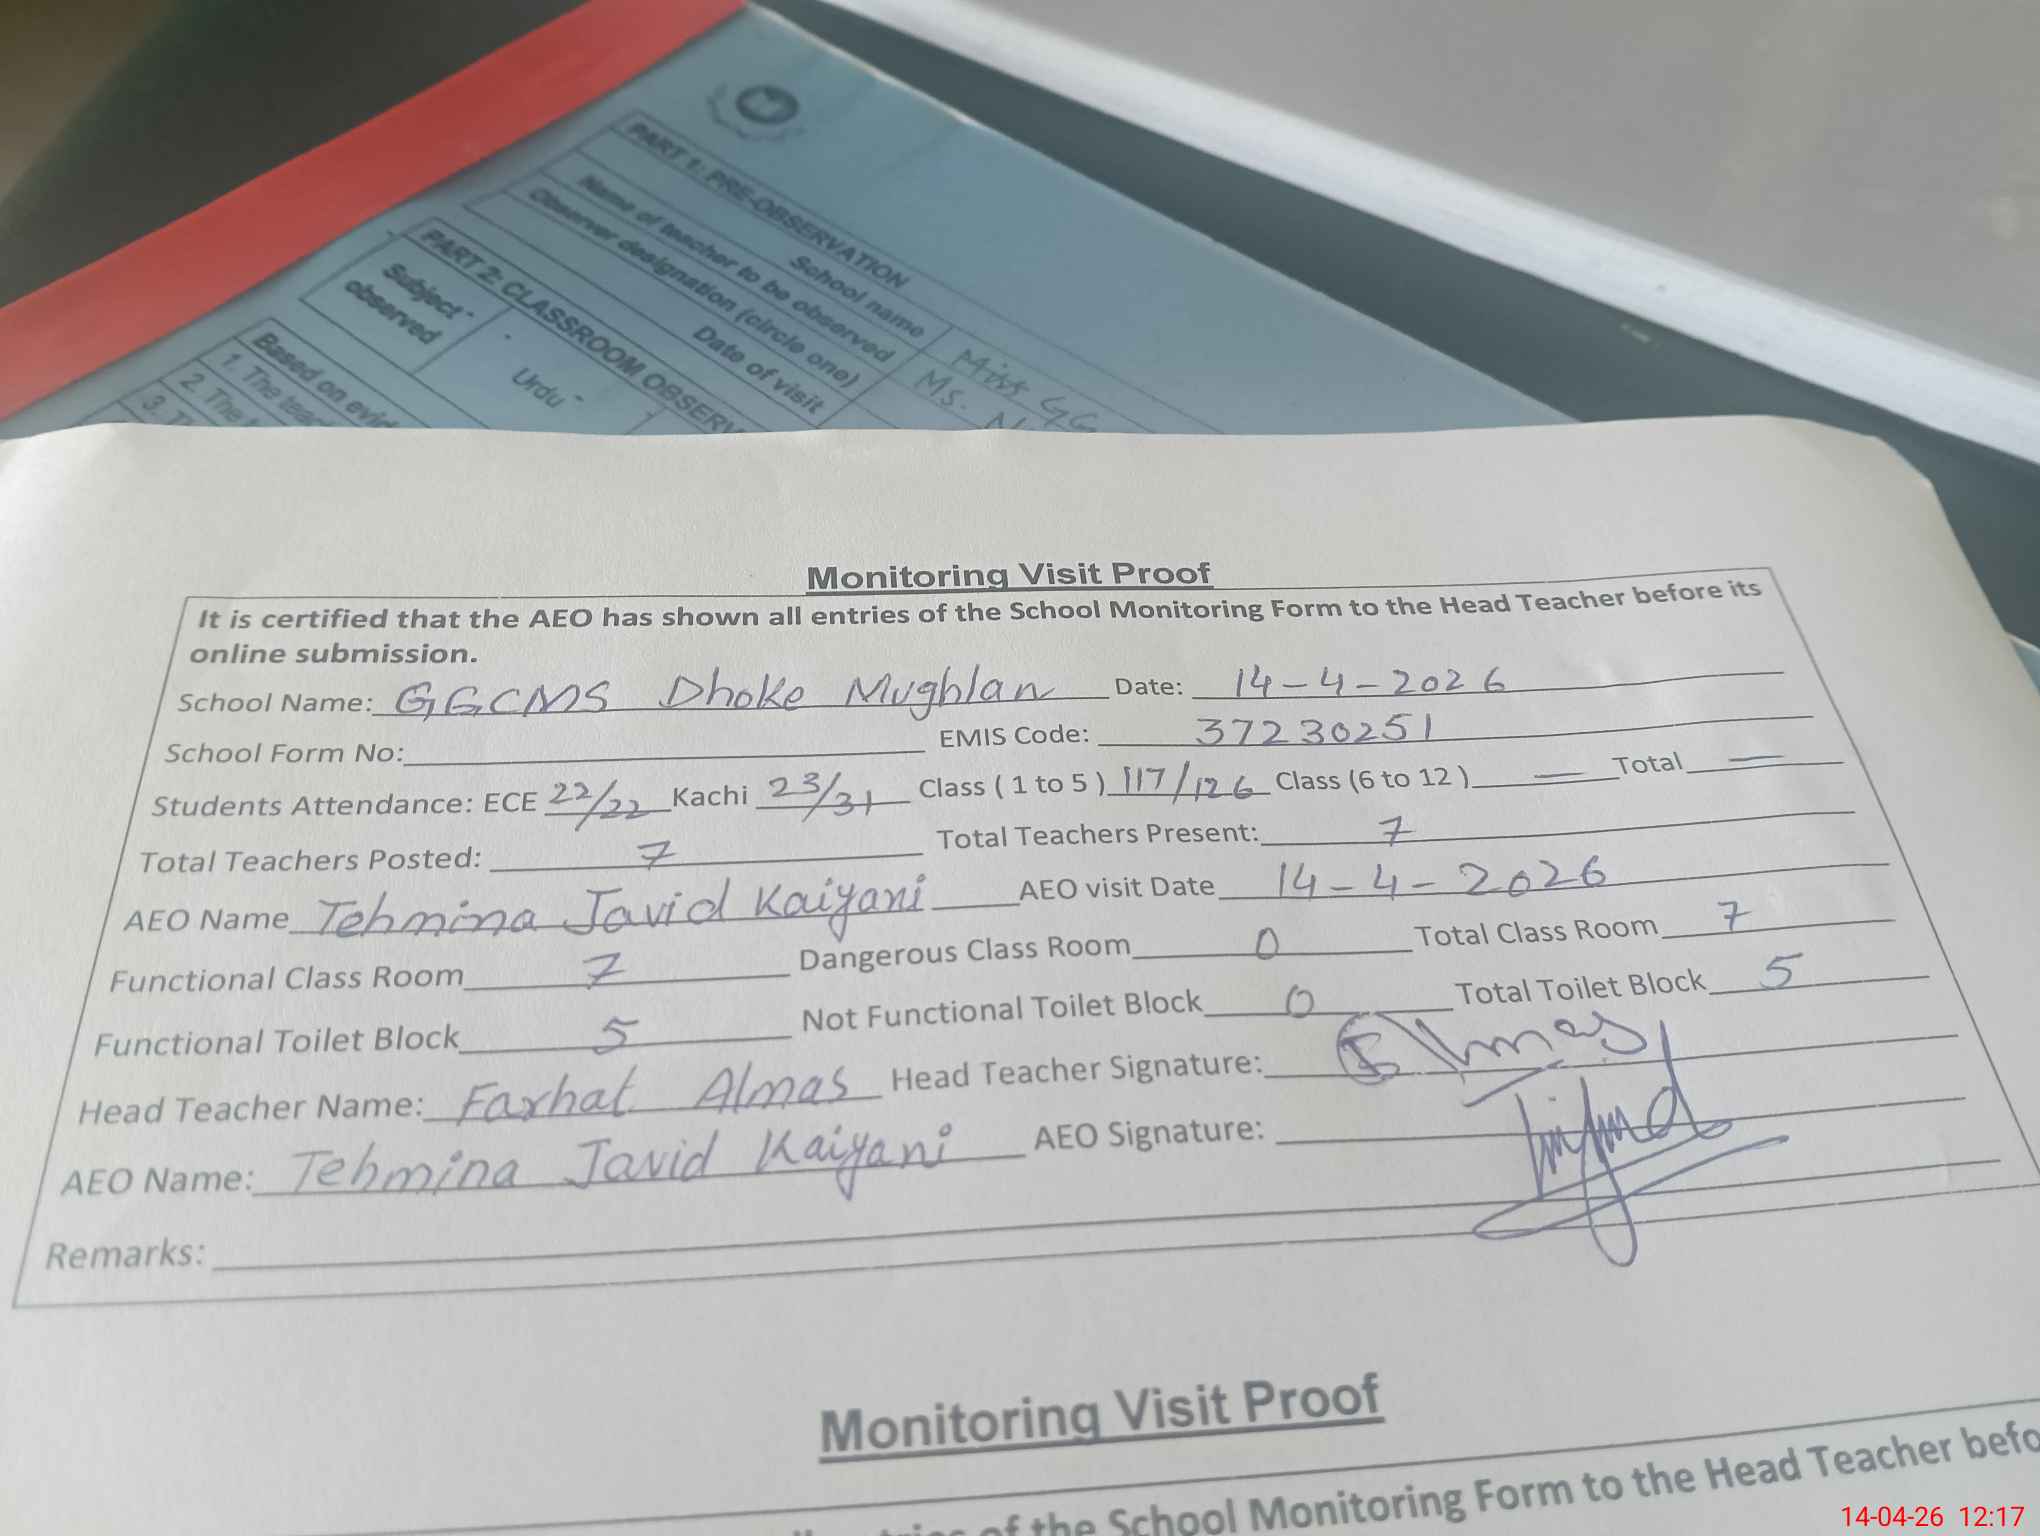 PART 1: PRE-OBSERVATION
School name Miss GG
Name of teacher to be observed Ms. N
Observer designation (circle one)
Date of visit
PART 2: CLASSROOM OBSERV
Subject observed Urdu
Based on evid
1. The teac
2. The t
3. T
Monitoring Visit Proof
It is certified that the AEO has shown all entries of the School Monitoring Form to the Head Teacher before its
online submission.
School Name: GGCMS Dhoke Mughlan Date: 14-4-2026
School Form No: EMIS Code: 37230251
Students Attendance: ECE 22/22 Kachi 23/31 Class ( 1 to 5 ) 117/126 Class (6 to 12 ) — Total —
Total Teachers Posted: 7 Total Teachers Present: 7
AEO Name Tehmina Javid Kaiyani AEO visit Date 14-4-2026
Functional Class Room 7 Dangerous Class Room 0 Total Class Room 7
Functional Toilet Block 5 Not Functional Toilet Block 0 Total Toilet Block 5
Head Teacher Name: Farhat Almas Head Teacher Signature:
AEO Name: Tehmina Javid Kaiyani AEO Signature:
Remarks:
Monitoring Visit Proof
of the School Monitoring Form to the Head Teacher befo
14-04-26 12:17